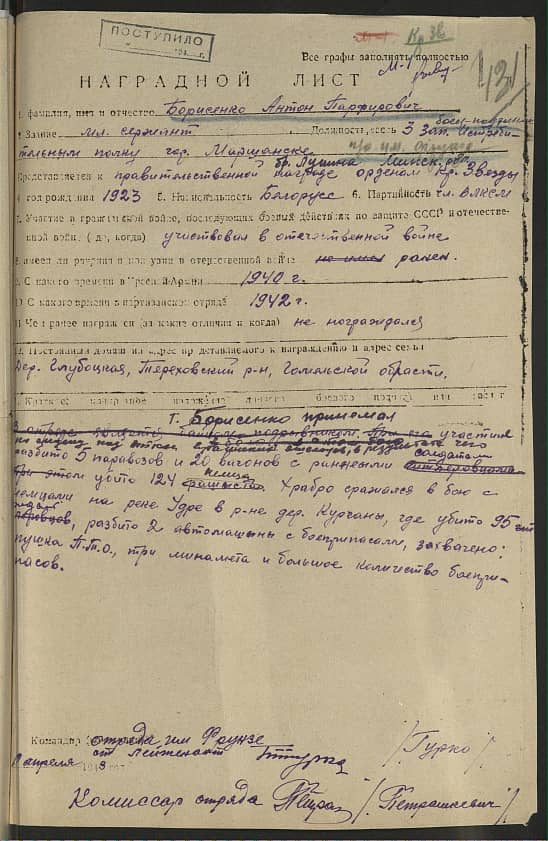 ПОСТУПИЛО
Кр. Зв.
Все графы заполнять полностью
НАГРАДНОЙ ЛИСТ
1. Фамилия, имя и отчество Борисенко Антон Парфирович
2. Звание мл. сержант Должность, часть 3 Зап. Истреби-
тельным полку гор. Моршанске
бр. Лунина Минск. обл.
Представляется к правительственной награде орденом Кр. Звезды
4. Год рождения 1923 5. Национальность Белорусс 6. Партийность чл. ВЛКСМ
7. Участие в гражданской войне, последующих боевых действиях по защите СССР и отечествен-
ной войне (где, когда) участвовал в отечественной войне
8. Имеет ли ранения и контузии в отечественной войне не имел ранен.
9. С какого времени в Красной Армии 1940 г.
10. С какого времени в партизанском отряде 1942 г.
11. Чем ранее награжден (за какие отличия и когда) не награждался
12. Постоянный домашний адрес представляемого к награждению и адрес семьи
Дер. Глубоцкая, Тереховский р-н, Гомельской области.
т. Борисенко принимал
участие
разбито 5 паровозов и 20 вагонов с раненными солдатами
При этом убито 124 немца фашиста Храбро сражался в бою с
немцами на реке Удре в р-не дер. Курганы, где убито 95
разбито 2 автомашыны с боеприпасами, захвачено:
пушка П.Т.О., три миномета и большое количество боепри-
пасов.
Командир отряда им Фрунзе
ст. лейтенант /Гурко/
апреля 1943
Комиссар отряда /Петрашкевич/